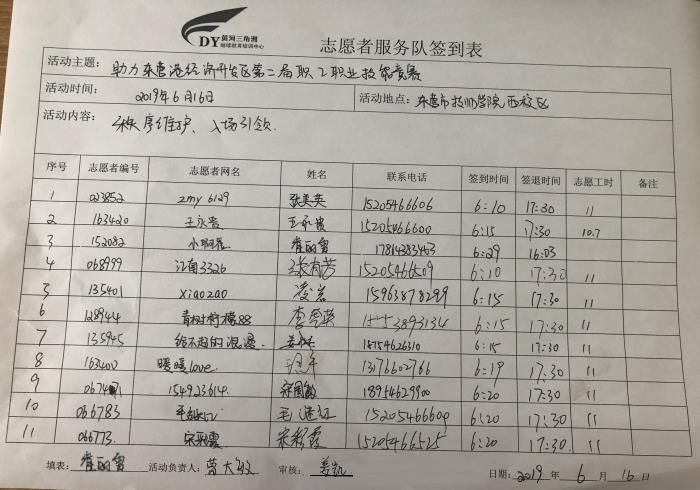 DY 黄河三角洲
继续教育培训中心
志愿者服务队签到表
活动主题: 助力东营港经济开发区第二届职工职业技能竞赛
活动时间: 2019年6月16日 活动地点: 东营市技师学院西校区
活动内容: 秩序维护、入场引领.
序号 志愿者编号 志愿者网名 姓名 联系电话 签到时间 签退时间 志愿工时 备注
1 023852 zmy 6129 张美英 15205466606 6:10 17:30 11
2 163420 王永贵 王永贵 15205466600 6:15 17:30 10.7
3 152082 崔丽曾 17814383403 6:29 16:03
4 068999 江南3326 张有芳 15205466509 6:10 17:30 11
5 135401 xiaozao 凌岩 15963878299 6:15 17:30 11
6 128944 青树柠檬88 15553893134 6:15 17:30 11
7 135945 给不起的浪漫. 18154626310 6:15 17:30 11
8 163400 暖暖love. 13176602766 6:19 17:30 11
9 154923614. 18954629900 6:20 17:30 11
10 066783 毛 15205466600 6:20 17:30 11
11 066773. 宋彩霞 宋彩霞 15205466525 6:20 17:30. 11
填表: 崔丽曾 活动负责人: 曹大敏 审核: 姜凯 日期: 2019 年 6 月 16 日